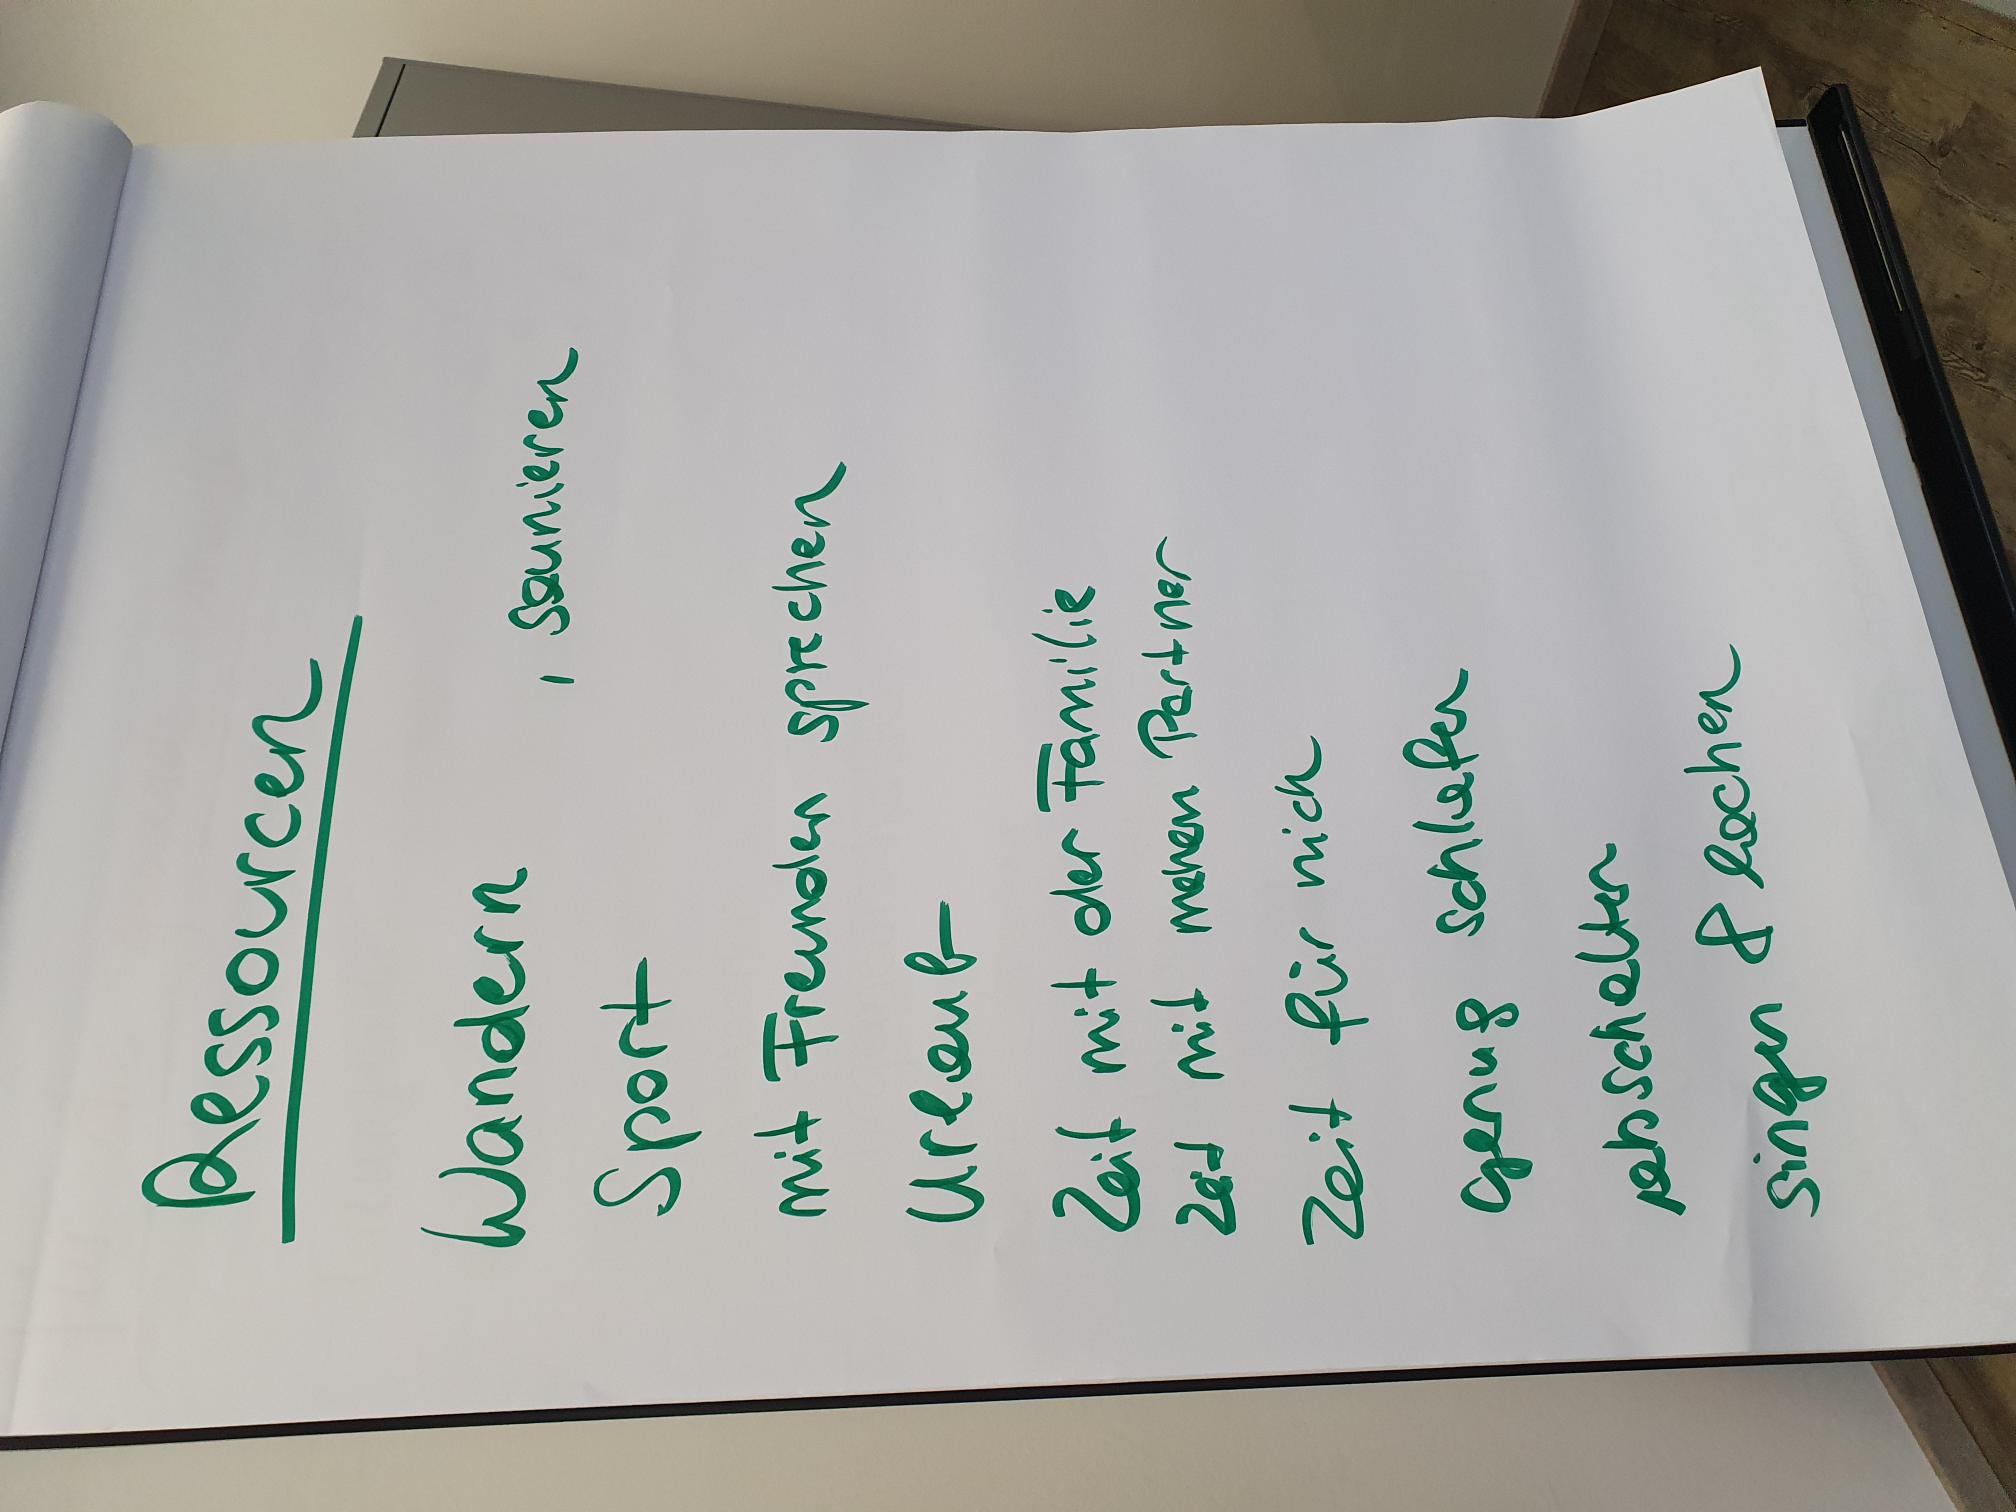 Ressourcen
Wandern , saunieren
Sport
mit Freunden sprechen
Urlaub
Zeit mit der Familie
Zeit mit meinem Partner
Zeit für mich
genug schlafen
abschalten
singen & lachen